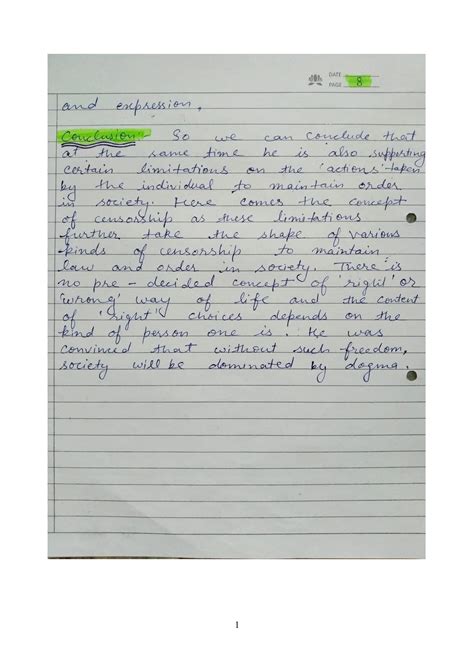 DATE
PAGE 8
and expression.
Conclusion :- So we can conclude that
at the same time he is also supporting
certain limitations on the 'actions' taken
by the individual to maintain order
in society. Here comes the concept
of censorship as these limitations
further take the shape of various
kinds of censorship to maintain
law and order in society. There is
no pre - decided concept of 'right' or
'wrong' way of life and the content
of 'right' choices depends on the
kind of person one is. He was
convinced that without such freedom,
society will be dominated by dogma.
1